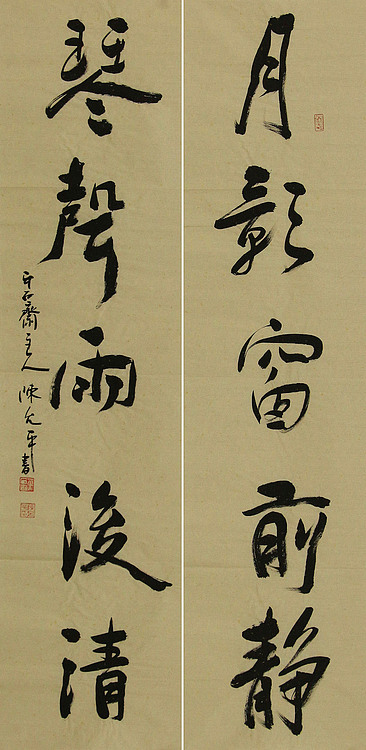 月影窗前静
琴聲雨後清
齋主人陳允平書